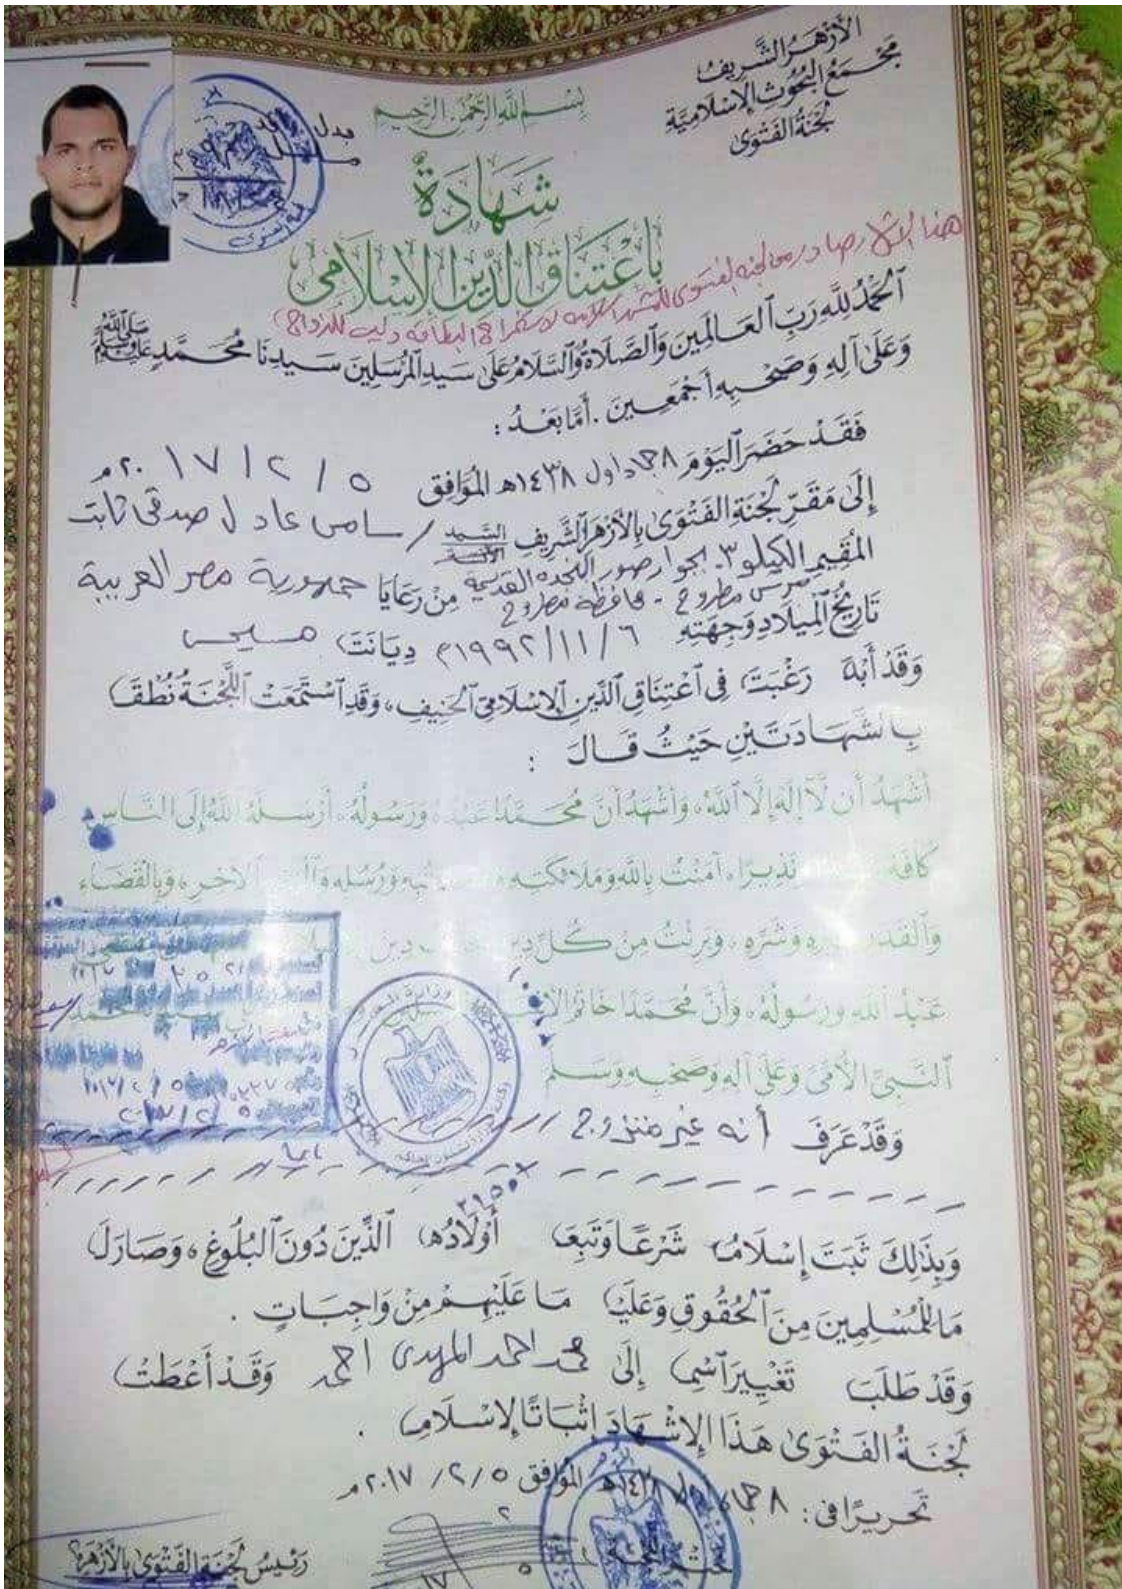 الأزهر الشريف
مجمع البحوث الإسلامية
لجنة الفتوى
بسم الله الرحمن الرحيم
بدل
شهادة
باعتناق الدين الإسلامى
هذا الإشهار صادر من لجنة الفتوى للمشهر إسلامه لاستخراج البطاقة وليس للزواج
الْحَمْدُ لِلَّهِ رَبِّ الْعَالَمِينَ وَالصَّلَاةُ وَالسَّلَامُ عَلَى سَيِّدِ الْمُرْسَلِينَ سَيِّدِنَا مُحَمَّدٍ ﷺ
وَعَلَى آلِهِ وَصَحْبِهِ أَجْمَعِينَ . أَمَّا بَعْدُ :
فَقَدْ حَضَرَ الْيَوْمَ ٨ جماد اول ١٤٣٨هـ الْمُوَافِق ٥ / ٢ / ٢٠١٧م
إِلَى مَقَرِّ لَجْنَةِ الْفَتْوَى بِالْأَزْهَرِ الشَّرِيفِ السيد / سامى عادل صدقى ثابت
المُقِيم الكيلو ٣ بجوار سور النجده القديمة مِنْ رَعَايَا جمهورية مصر العربية
مرسى مطروح - محافظة مطروح
تَارِيخُ الْمِيلَادِ وَجِهَتِهِ ٦ / ١١ / ١٩٩٢م دِيَانَتَه مسيحى
وَقَدْ أَبْدَى رَغْبَتَه فِى اعْتِنَاقِ الدِّينِ الْإِسْلَامِيِّ الْحَنِيفِ، وَقَدِ اسْتَمَعَتْ اللَّجْنَةُ نُطْقَه
بِالشَّهَادَتَيْنِ حَيْثُ قَالَ :
أَشْهَدُ أَن لَّا إِلَهَ إِلَّا اللَّهُ، وَأَشْهَدُ أَنَّ مُحَمَّدًا عَبْدُهُ وَرَسُولُهُ، أَرْسَلَهُ اللَّهُ إِلَى النَّاسِ
كَافَّةً نَذِيرًا، آمَنْتُ بِاللَّهِ وَمَلَائِكَتِهِ وَرُسُلِهِ الْآخِرِ، وَبِالْقَضَاءِ
وَالْقَدَرِ وَشَرِّهِ، وَبَرِئْتُ مِنْ كُلِّ دِينٍ دِينَ
عَبْدُ اللَّهِ وَرَسُولُهُ، وَأَنَّ مُحَمَّدًا خَاتَمُ
النَّبِيِّ الْأُمِّيِّ وَعَلَى آلِهِ وَصَحْبِهِ وَسَلَّمَ
وَقَدْ عَرَفَ أنه غير متزوج
وَبِذَلِكَ ثَبَتَ إِسْلَامُه شَرْعًا وَتَبِعَه أَوْلَادُه الَّذِينَ دُونَ الْبُلُوغِ، وَصَارَ لَه
مَا لِلْمُسْلِمِينَ مِنَ الْحُقُوقِ وَعَلَيْه مَا عَلَيْهِمْ مِنْ وَاجِبَاتٍ .
وَقَدْ طَلَبَ تَغْيِيرَ اسْمِه إِلَى محمد احمد المهدى احمد وَقَدْ أَعْطَتْه
لَجْنَةُ الْفَتْوَى هَذَا الْإِشْهَادَ إِثْبَاتًا لِإِسْلَامِه .
تَحْرِيرًا فِى : ٨ جماد اول ١٤٣٨هـ الْمُوَافِق ٥ / ٢ / ٢٠١٧م
رَئِيسُ لَجْنَةِ الْفَتْوَى بِالْأَزْهَرِ